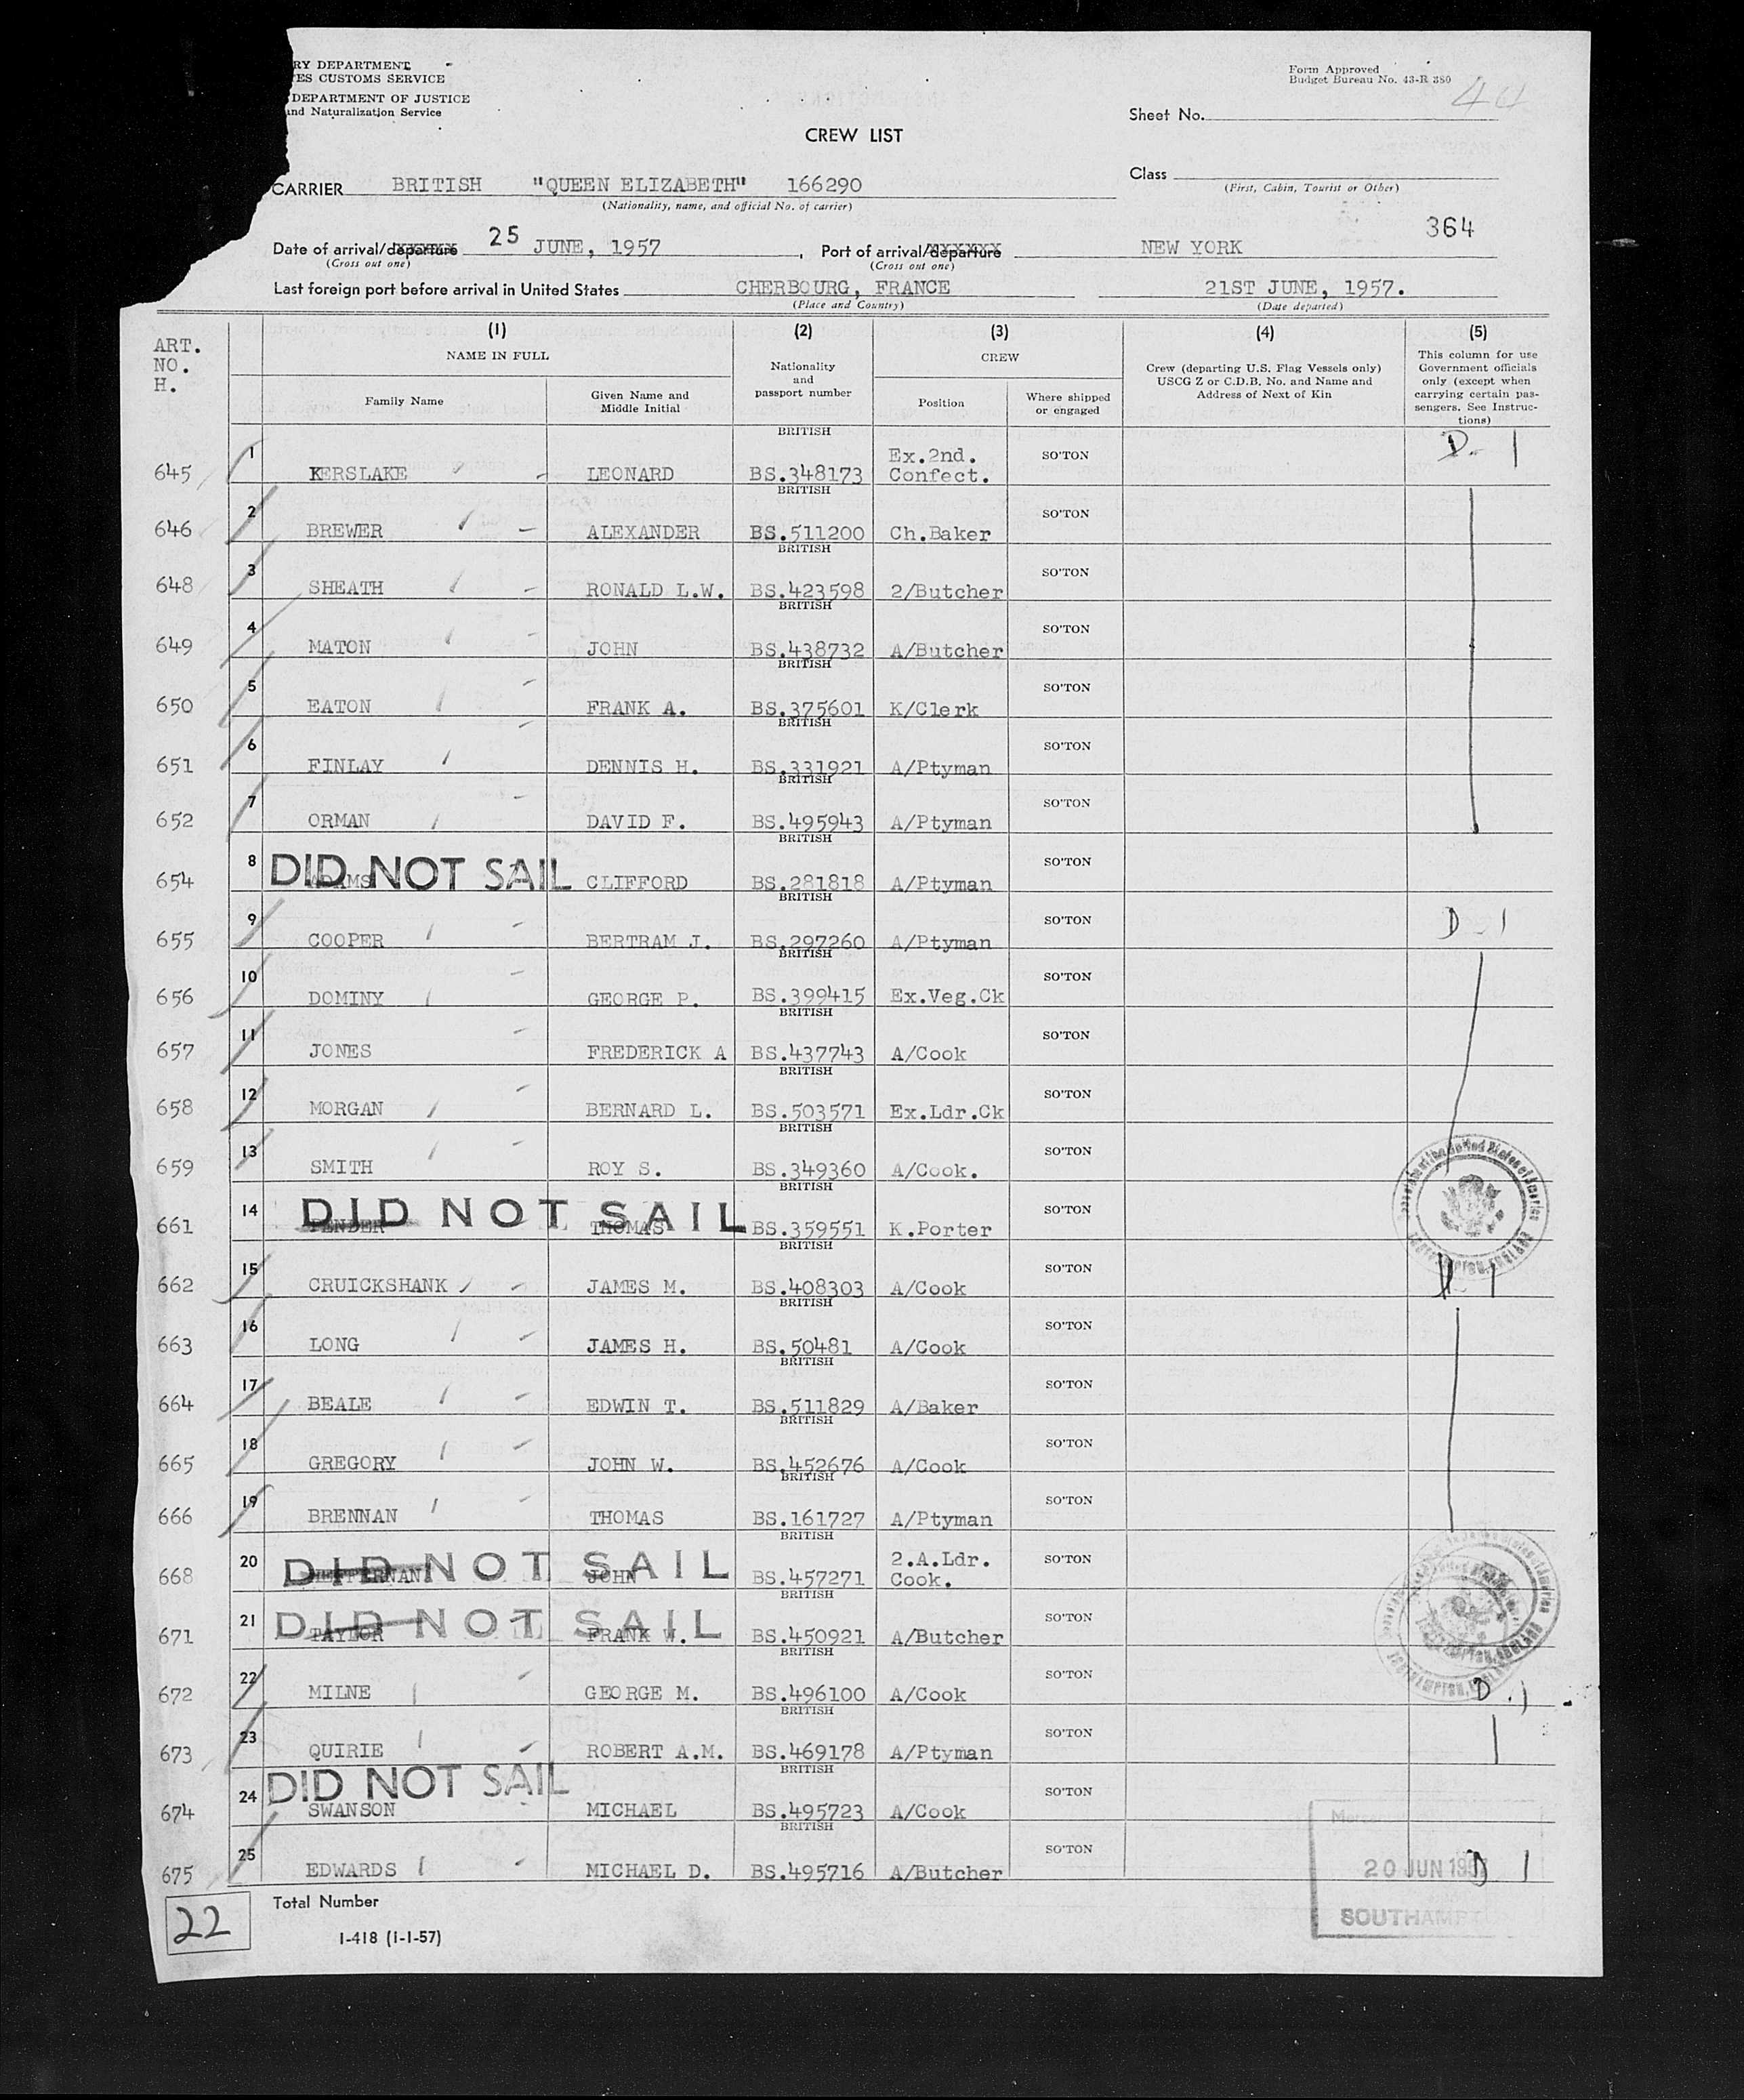 RY DEPARTMENT
ES CUSTOMS SERVICE
DEPARTMENT OF JUSTICE
and Naturalization Service
Form Approved
Budget Bureau No. 43-R 380
Sheet No.
CREW LIST
CARRIER BRITISH "QUEEN ELIZABETH" 166290
(Nationality, name, and official No. of carrier)
Class
(First, Cabin, Tourist or Other)
364
Date of arrival/departure 25 JUNE, 1957, Port of arrival/departure NEW YORK
(Cross out one) (Cross out one)
Last foreign port before arrival in United States CHERBOURG, FRANCE 21ST JUNE, 1957.
(Place and Country) (Date departed)
ART. NO. H.
(1) (2) (3) (4) (5)
NAME IN FULL
Family Name
Given Name and Middle Initial
Nationality and passport number
CREW
Position
Where shipped or engaged
Crew (departing U.S. Flag Vessels only) USCG Z or C.D.B. No. and Name and Address of Next of Kin
This column for use Government officials only (except when carrying certain passengers. See Instructions)
645 1 KERSLAKE LEONARD BRITISH BS.348173 Ex.2nd. Confect. SO'TON D - 1
646 2 BREWER ALEXANDER BRITISH BS.511200 Ch.Baker SO'TON
648 3 SHEATH RONALD L.W. BRITISH BS.423598 2/Butcher SO'TON
649 4 MATON JOHN BRITISH BS.438732 A/Butcher SO'TON
650 5 EATON FRANK A. BRITISH BS.375601 K/Clerk SO'TON
651 6 FINLAY DENNIS H. BRITISH BS.331921 A/Ptyman SO'TON
652 7 ORMAN DAVID F. BRITISH BS.495943 A/Ptyman SO'TON
654 8 DID NOT SAIL CLIFFORD BRITISH BS.281818 A/Ptyman SO'TON
655 9 COOPER BERTRAM J. BRITISH BS.297260 A/Ptyman SO'TON D - 1
656 10 DOMINY GEORGE P. BRITISH BS.399415 Ex.Veg.Ck SO'TON
657 11 JONES FREDERICK A BRITISH BS.437743 A/Cook SO'TON
658 12 MORGAN BERNARD L. BRITISH BS.503571 Ex.Ldr.Ck SO'TON
659 13 SMITH ROY S. BRITISH BS.349360 A/Cook. SO'TON
661 14 DID NOT SAIL THOMAS BRITISH BS.359551 K.Porter SO'TON
662 15 CRUICKSHANK JAMES M. BRITISH BS.408303 A/Cook SO'TON
663 16 LONG JAMES H. BRITISH BS.50481 A/Cook SO'TON
664 17 BEALE EDWIN T. BRITISH BS.511829 A/Baker SO'TON
665 18 GREGORY JOHN W. BRITISH BS.452676 A/Cook SO'TON
666 19 BRENNAN THOMAS BRITISH BS.161727 A/Ptyman SO'TON
668 20 DID NOT SAIL JOHN BRITISH BS.457271 2.A.Ldr. Cook. SO'TON
671 21 DID NOT SAIL TAYLOR FRANK W. BRITISH BS.450921 A/Butcher SO'TON
672 22 MILNE GEORGE M. BRITISH BS.496100 A/Cook SO'TON D . 1
673 23 QUIRIE ROBERT A.M. BRITISH BS.469178 A/Ptyman SO'TON
674 24 DID NOT SAIL SWANSON MICHAEL BRITISH BS.495723 A/Cook SO'TON
675 25 EDWARDS MICHAEL D. BRITISH BS.495716 A/Butcher SO'TON D 1
20 JUN 1957
22 Total Number
I-418 (1-1-57)